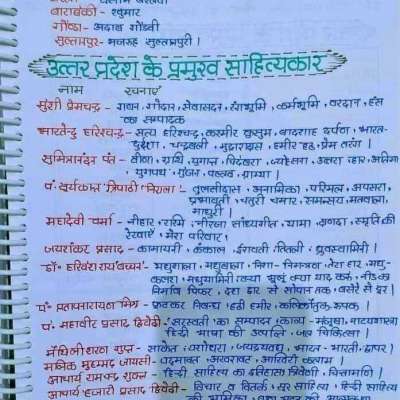 बाराबंकी - खुमार
गोंडा - अदम गोंडवी
सुल्तानपुर - मजरुह सुल्तानपुरी ।
उत्तर प्रदेश के प्रमुख साहित्यकार
नाम रचनाएं
मुंशी प्रेमचन्द्र - गबन, गोदान, सेवासदन, रंगभूमि, कर्मभूमि, वरदान, हंस
का सम्पादक
भारतेन्दु हरिश्चन्द्र - सत्य हरिश्चन्द्र, कश्मीर कुसुम, बादशाह दर्पण, भारत-
दुर्दशा, चन्द्रावली, मुद्राराक्षस, हमीर हठ, प्रेम तरंग ।
सुमित्रानंदन पंत - वीणा, ग्रंथि, युगान्त, चिदंबरा,
युगपथ, गुंजन, पल्लव, ग्राम्या ।
पं. सूर्यकान्त त्रिपाठी 'निराला' - तुलसीदास, अनामिका, परिमल, अप्सरा,
प्रभावती, चतुरी चमार, समन्वय, मतवाला,
माधुरी ।
महादेवी वर्मा - नीहार, रश्मि, नीरजा, सांध्यगीत, यामा, क्षणदा, स्मृति की
रेखाएं, मेरा परिवार ।
जयशंकर प्रसाद - कामायनी, कंकाल, इरावती, तितली, ध्रुवस्वामिनी ।
डॉ. हरिवंशराय 'बच्चन' - मधुशाला, मधुबाला, निशा - निमन्त्रण, तेरा हार, मधु-
कलश, क्या भूलूं क्या याद करूं, नीड़ का
निर्माण फिर, दशद्वार से सोपान तक, बसेरे से दूर ।
पं. प्रतापनारायण मिश्र - निबन्ध, हठी हमीर, कलिकौतुक, रूपक ।
पं. महावीर प्रसाद द्विवेदी - 'सरस्वती' का सम्पादन, काव्य - मंजूषा, नाट्यशास्त्र
हिन्दी भाषा की उत्पत्ति, जल चिकित्सा ।
मैथिलीशरण गुप्त - साकेत, यशोधरा, जयद्रथवध, भारत - भारती, द्वापर ।
मलिक मुहम्मद जायसी - पद्मावत, अखरावट, आखिरी कलाम ।
आचार्य रामचन्द्र शुक्ल - हिन्दी साहित्य का इतिहास, त्रिवेणी, चिन्तामणि ।
आचार्य हजारी प्रसाद द्विवेदी - विचार व वितर्क, सूर साहित्य, हिन्दी साहित्य
की भूमिका,